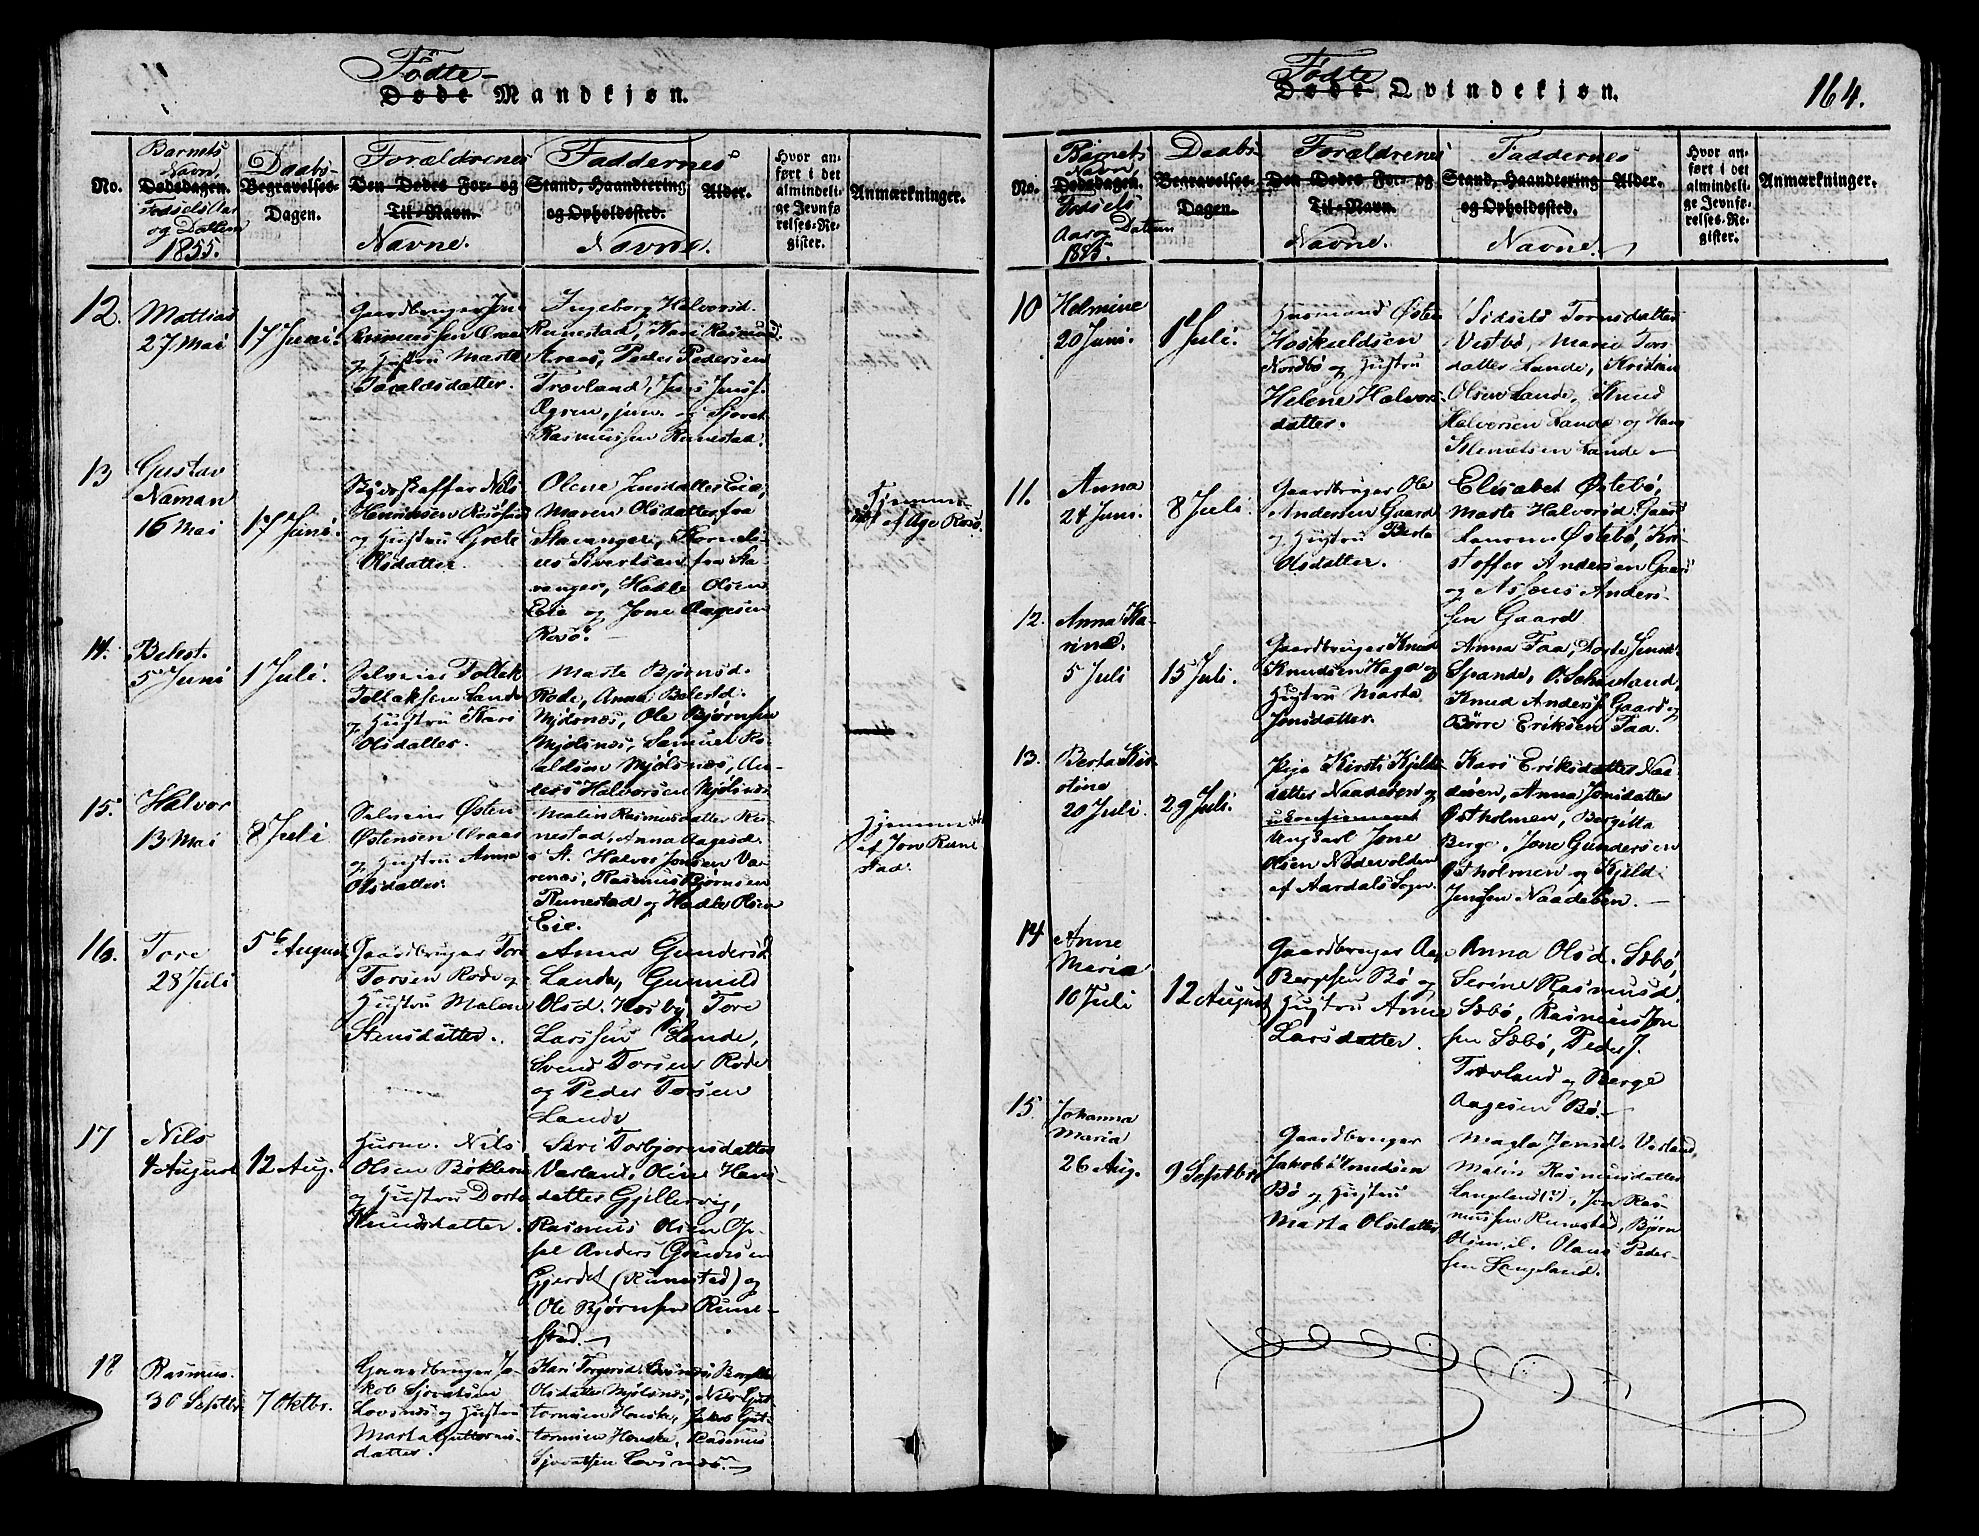 Födte
Døde Mandkjøn.
No.
Barnets Navn,
Dødsdagen.
Fødsels Aar
og Datum
1855.
Daabs-
Begravelses-
Dagen.
Forældrenes
Den Dødes For- og
Til-Navn.
Navne.
Faddernes
Stand, Haandtering
og Opholdssted.
Navne.
Alder.
Hvor an-
ført i det
almindeli-
ge Jevnfø-
relses-Re-
gister.
Anmærkninger.
12.
Mattias
27 Mai
17 Juni.
Gaardbruger Jone
Rasmussen Araas
og Hustru Marta
Taraldsdatter.
Ingeborg Halvorsd.
Runestad, Kari Rasmusd.
Araas, Peder Pedersen
Trovland, Jens Jensf.
Ogren, jun. og Sjovat
Rasmussen Runestad.
13
Gustav
Naman
16 Mai
17 Juni.
Nils
Henriksen
og Hustru Grete
Olsdatter.
Olene Jonsdatter Eie,
Maren Olsdatter fra
Stavanger, Kornels-
ius Sivertsen fra Sta-
vanger, Hadle Olsen
Eie og Jone Aagesen
Rosø.
Hjemme-
døbt af Age Rosø.
14.
Belest.
5 Juni
1 Juli.
Selveier Tollak
Tollaksen Lande
og Hustru Kari
Olsdatter.
Marte Bjørnsd.
Rode, Anna Belestd.
Mjølsnæs, Ole Bjørnsen
Mjølsnæs, Samuel Ro-
aldsen Mjølsnæs, An-
ders Halvorsen Mjølsnæs
15.
Halvor
13 Mai
8 Juli
Selveier Østen
Østensen Araas
og Hustru Anna
Olsdatter.
Malin Rasmusdatter Ru-
nestad, Anna Aagesd.
s. A. Halvor Jonsen Va-
renæs, Rasmus Bjørnsen
Runestad og Hadle Olsen
Eie.
Hjemmedøbt
af Jon Rune-
stad.
16.
Tore
28 Juli
5te August
Gaardbruger Tore
Torsen Rode og
Hustru Malene
Stensdatter.
Anna Gundersd.
Lande, Gunnild
Olsd. Hosby, Tore
Larssen Lande,
Svend Torsen Rode
og Peder Torsen
Lande
17
Nils
4 August
12 Aug.
Husm. Nils
Olsen Bøklevn
og Hustru Dorte
Knudsdatter.
Siri Torbjørnsdatter
Varland, Oline Hans-
datter Gjillervig,
Rasmus Olsen Op-
sal Anders Gundsen
Gjerdet (Runestad) og
Ole Bjørnsen Rune-
stad.
18
Rasmus.
30 Septbr.
7 Oktbr.
Gaardbruger Ja-
kob Sjovatsen
Lovsnæs og Hustru
Marta Guttorms-
datter.
Kari Torgersd.
Olsdatter Mjølsnæs, Nils Gut-
tormsen Honske, Jakob Gut-
tormsen Honske, Rasmus
Sjovatsen Lovsnæs.
Födte
Døde Qvindekjøn.
164.
No.
Barnets
Navn,
Dødsdagen.
Fødsels
Aar og Datum
1855.
Daabs-
Begravelses-
Dagen.
Forældrenes
Den Dødes For- og
Til-Navn.
Navne.
Faddernes
Stand, Haandtering
og Opholdssted.
Navne.
Alder.
Hvor an-
ført i det
almindeli-
ge Jevnfø-
relses-Re-
gister.
Anmærkninger.
10
Helmine
20 Juni.
1ste Juli.
Husmand Østen
Hoskuldsen
Nordbø og Hustru
Helene Halvors-
datter.
Sidsele Tormsdatter
Vestbø, Maria Tors-
datter Lande, Kristian
Olsen Lande, Knud
Halvorsen Lande og Hans
Klemetsen Lande.
11.
Anna
24 Juni.
8 Juli.
Gaardbruger Ole
Andersen Gaard
og Hustru Berta
Olsdatter.
Elisabet Østebø,
Marte Halvorsd. Gaard
Østebø, Kri-
stoffer Andersen Gaard
og Asseus Anders-
sen Gaard
12.
Anna Ka-
rine.
5 Juli
15 Juli.
Gaardbruger Knud
Knudsen Haga og
Hustru Marta
Jonsdatter.
Anna Faa, Dorte
Spande, O. Schouland,
Knud Anderss. Gaard og
Børre Eriksen Faa.
13.
Berta Kir-
stine
20 Juli.
29 Juli.
Pige Kirsti Kjelds-
datter Naadeøen og
ukonfirmeret
Ungkarl Jone
Olsen Nedevolden
af Aardals Sogn.
Kari Eriksdatter Naa-
døen, Anna Jonsdatter
Østholmen, Bergitta
Berge, Jone Gundersen
Østholmen og Kjeld
Jensen Naadøen.
14
Anne
Maria
10 Juli
12 August
Gaardbruger Aage
Bergesen Bø og
Hustru Anne
Larsdatter.
Anna Olsd. Sæbø,
Serine Rasmusd.
Sæbø, Rasmus Jon-
sen Sæbø, Peder J.
Trovland og Berge
Aagesen Bø.
15.
Johanna
Maria
26 Aug.
9 Septbr.
Gaardbruger
Jakob Knudsen
Bø og Hustru
Marta Olsdatter
Magla Jensd. Varland,
Malin Rasmusdatter
Langeland, Jon Ras-
mussen Runestad, Bjørn
Olsen i. Olaus Peder-
sen Langeland.